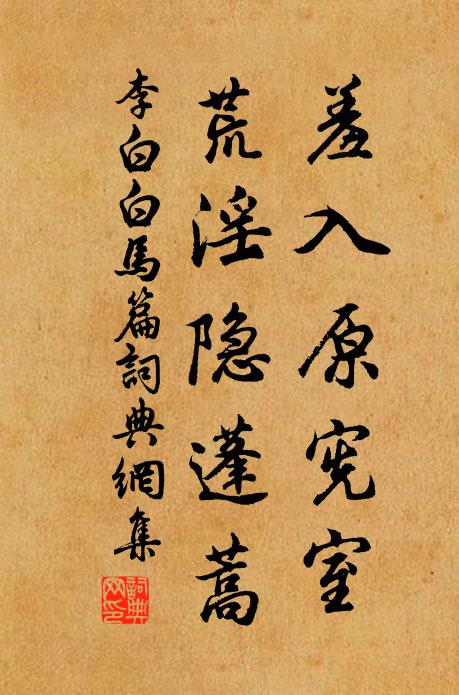 羞入原宪室
荒淫隐蓬蒿
李白白馬篇詞典網集
詞典
网印